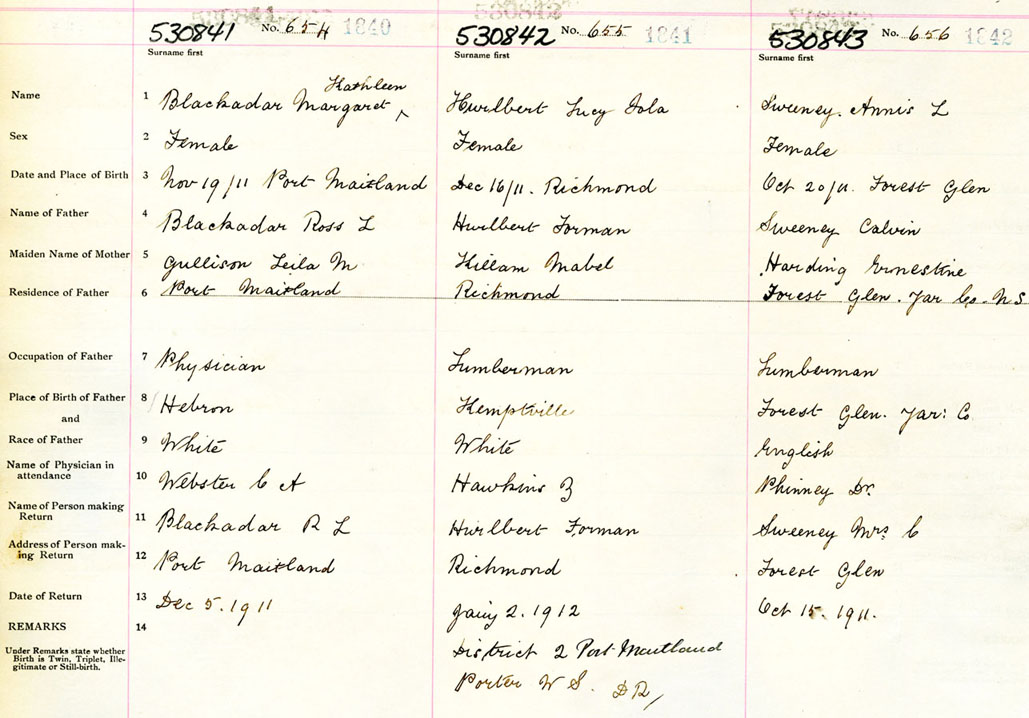 530841 No. 654 1840 530842 No. 655 1841 530843 No. 656 1842
Surname first Surname first Surname first
Kathleen
Name 1 Blackadar Margaret ^ Hurlbert Lucy Iola Sweeney. Annis L
Sex 2 Female Female Female
Date and Place of Birth 3 Nov 19/11 Port Maitland Dec 16/11. Richmond Oct 20/11. Forest Glen
Name of Father 4 Blackadar Ross L Hurlbert Forman Sweeney Calvin
Maiden Name of Mother 5 Gullison Leila M Killam Mabel Harding Ernestine
Residence of Father 6 Port Maitland Richmond Forest Glen. Yar Co. N S
Occupation of Father 7 Physician Lumberman Lumberman
Place of Birth of Father 8 Hebron Kemptville Forest Glen. Yar: Co
and
Race of Father 9 White White English
Name of Physician in
attendance 10 Webster C A Hawkins Z Phinney Dr.
Name of Person making
Return 11 Blackadar R L Hurlbert Forman Sweeney Mrs C
Address of Person mak-
ing Return 12 Port Maitland Richmond Forest Glen
Date of Return 13 Dec 5. 1911 Jany 2. 1912 Oct 15. 1911.
REMARKS 14
Under Remarks state whether District 2 Port Maitland
Birth is Twin, Triplet, Ille-
gitimate or Still-birth.
Porter W S. D R,